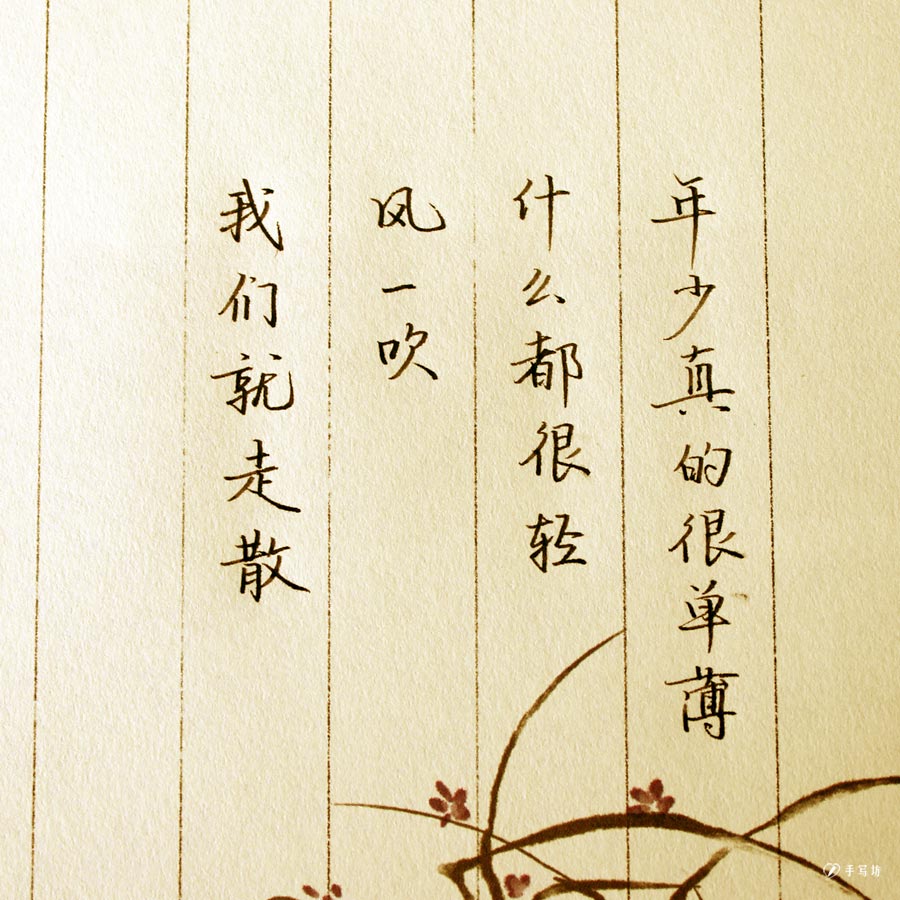 年少真的很单薄
什么都很轻
风一吹
我们就走散
手写坊